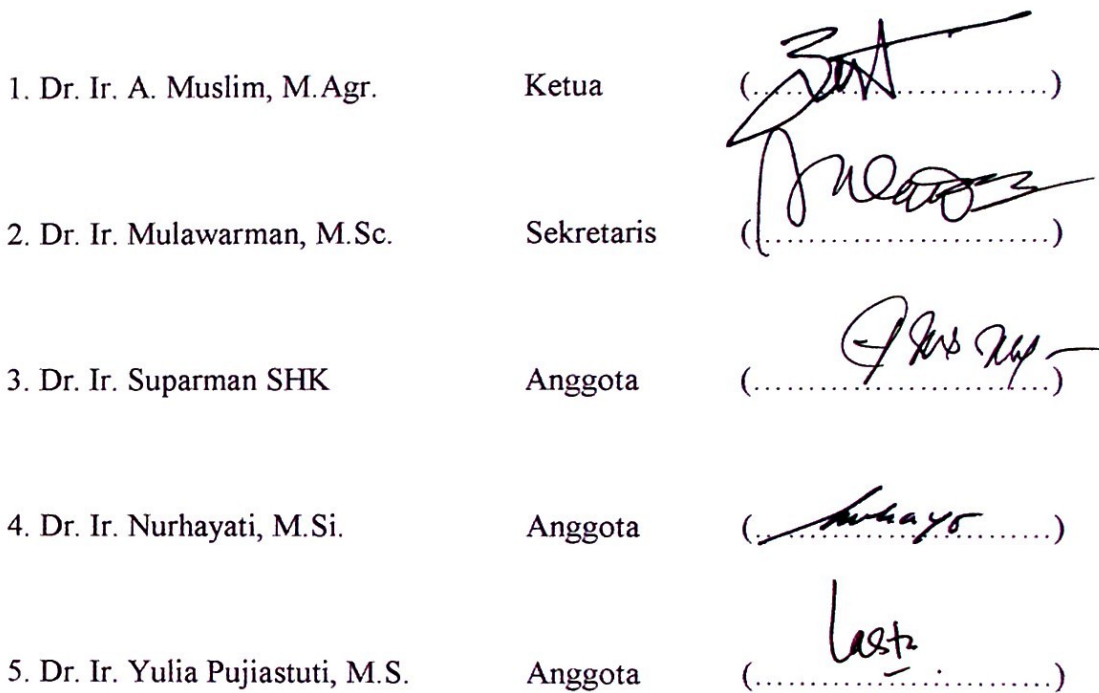 1. Dr. Ir. A. Muslim, M.Agr. Ketua (..............................)
2. Dr. Ir. Mulawarman, M.Sc. Sekretaris (..............................)
3. Dr. Ir. Suparman SHK Anggota (..............................)
4. Dr. Ir. Nurhayati, M.Si. Anggota (..............................)
5. Dr. Ir. Yulia Pujiastuti, M.S. Anggota (..............................)